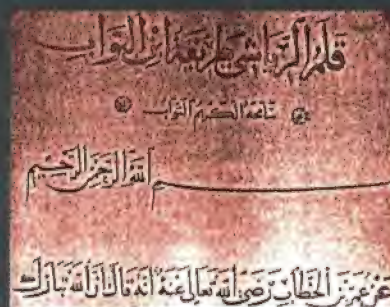 قلم الرياشي طريقة ابن البواب
الكريم التواب
بسم الله الرحمن الرحيم
عمر بن الخطاب رضي الله تعالى عنه انه قال ان الله تبارك